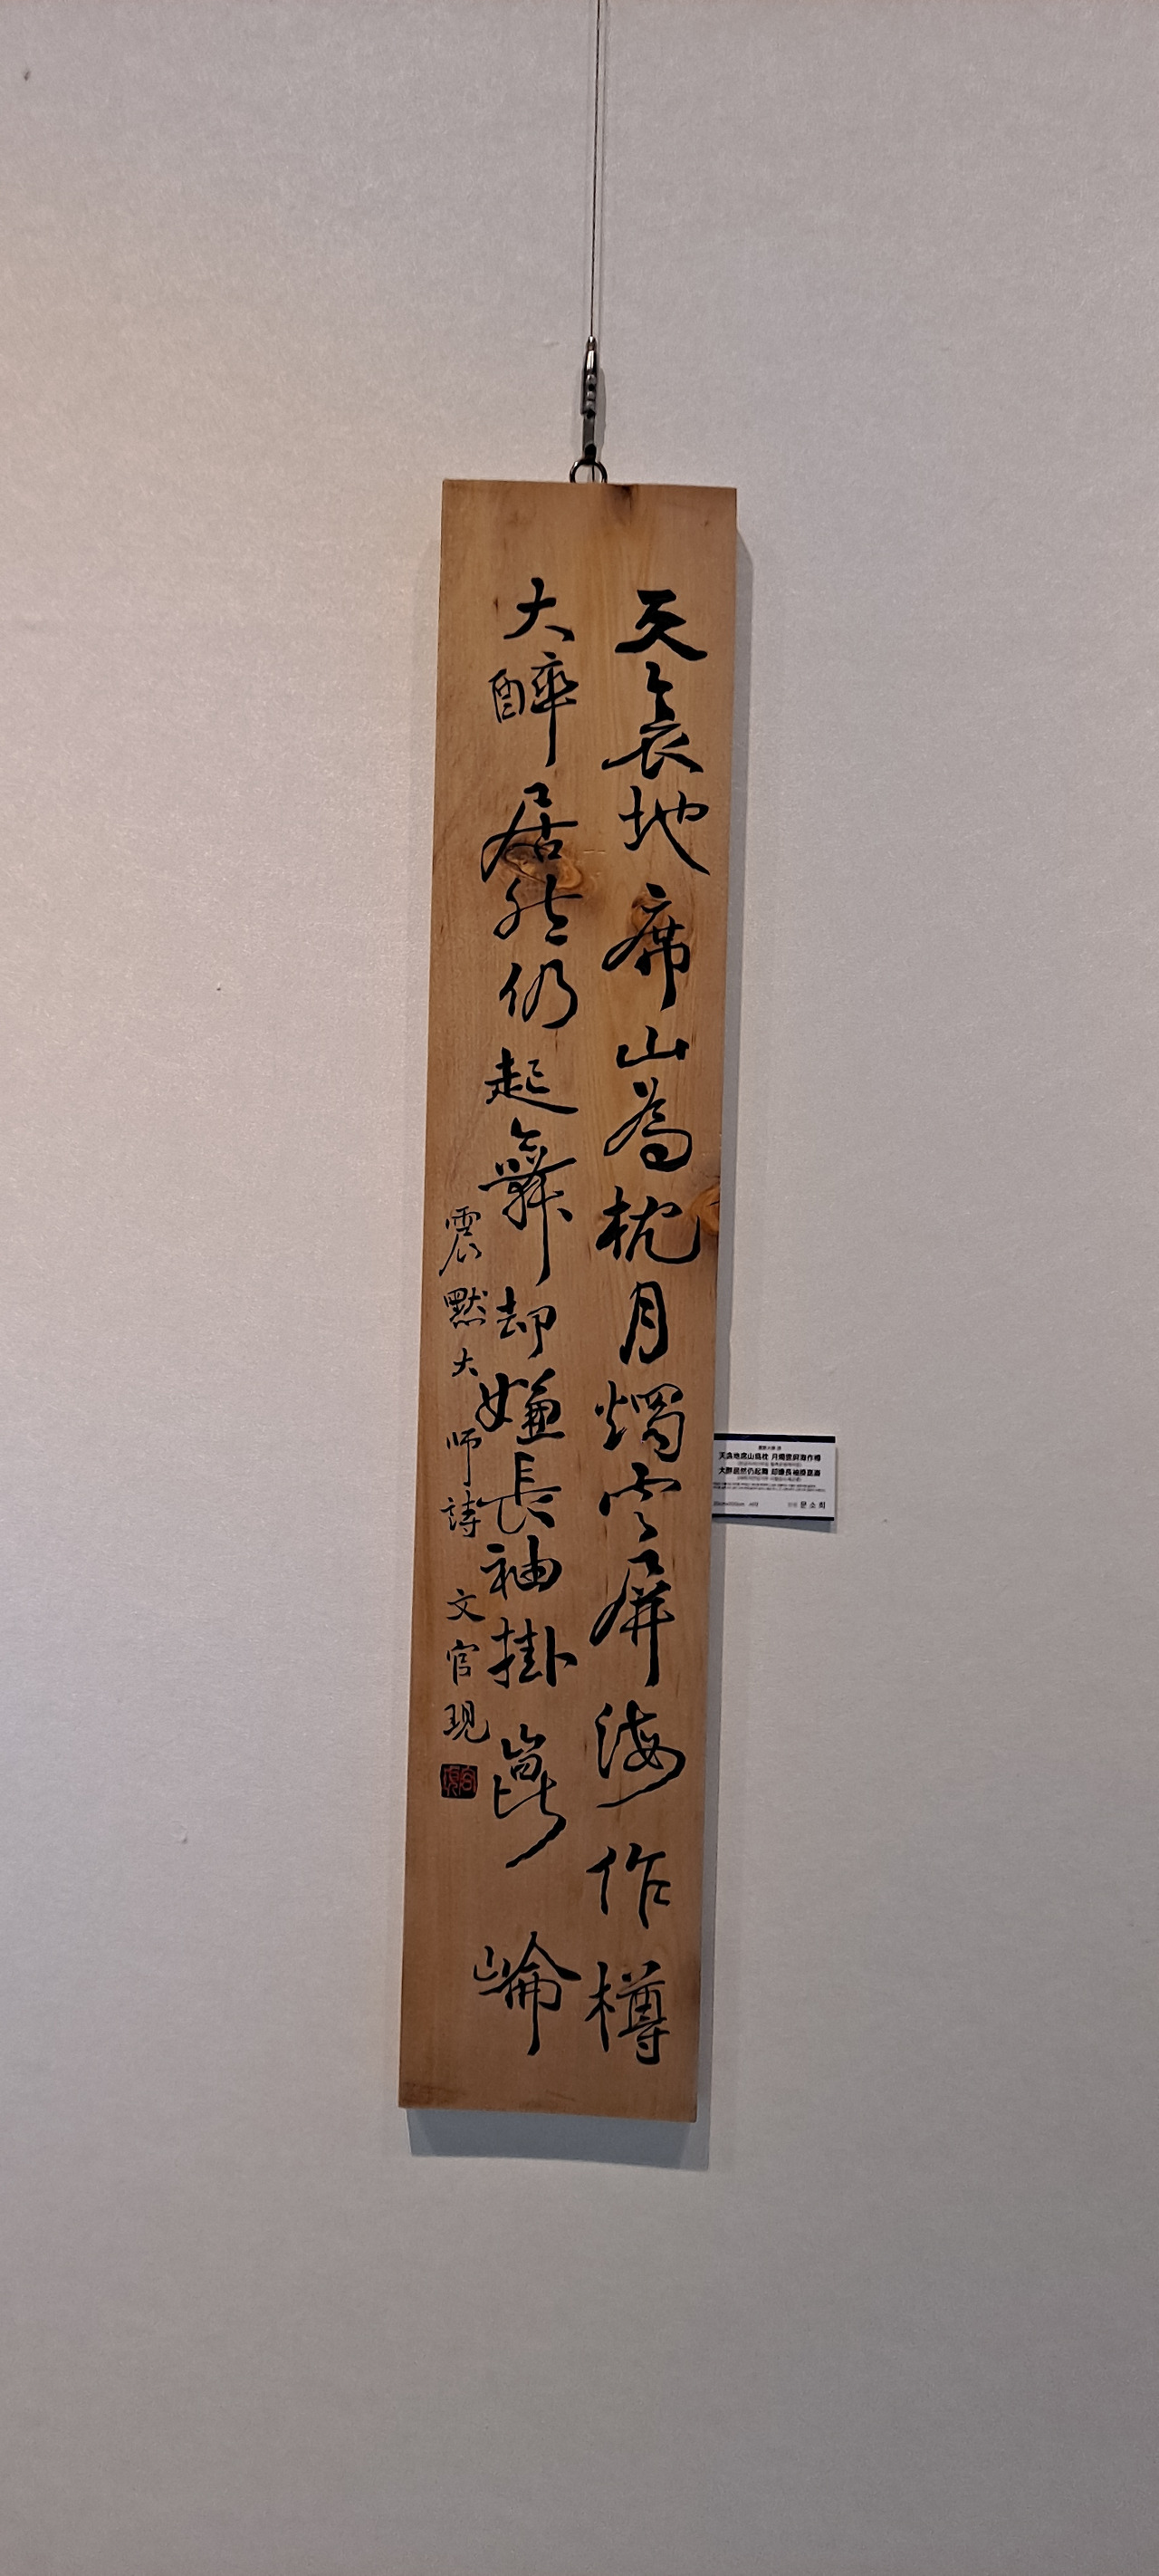 天衾地席山為枕月燭雲屏海作樽
大醉居然仍起舞却嫌長袖掛崑崙
震默大師詩 文官現
天衾地席山爲枕 月燭雲屛海作樽
大醉居然仍起舞 却嫌長袖掛崑崙
문소희